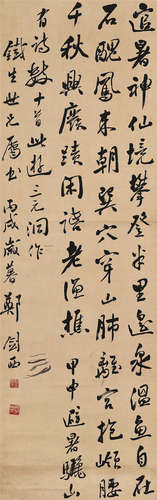 避暑神仙境攀登半里遥泉温鱼自在
石醜鳳来朝巽穴穿山肺離宫抱嶺腰
千秋興廢蹟閑話老漁樵 甲申避暑驪山
有詩数十首此遊三元洞作
鐵生世兄属書 丙戌歲暮鄭劍西